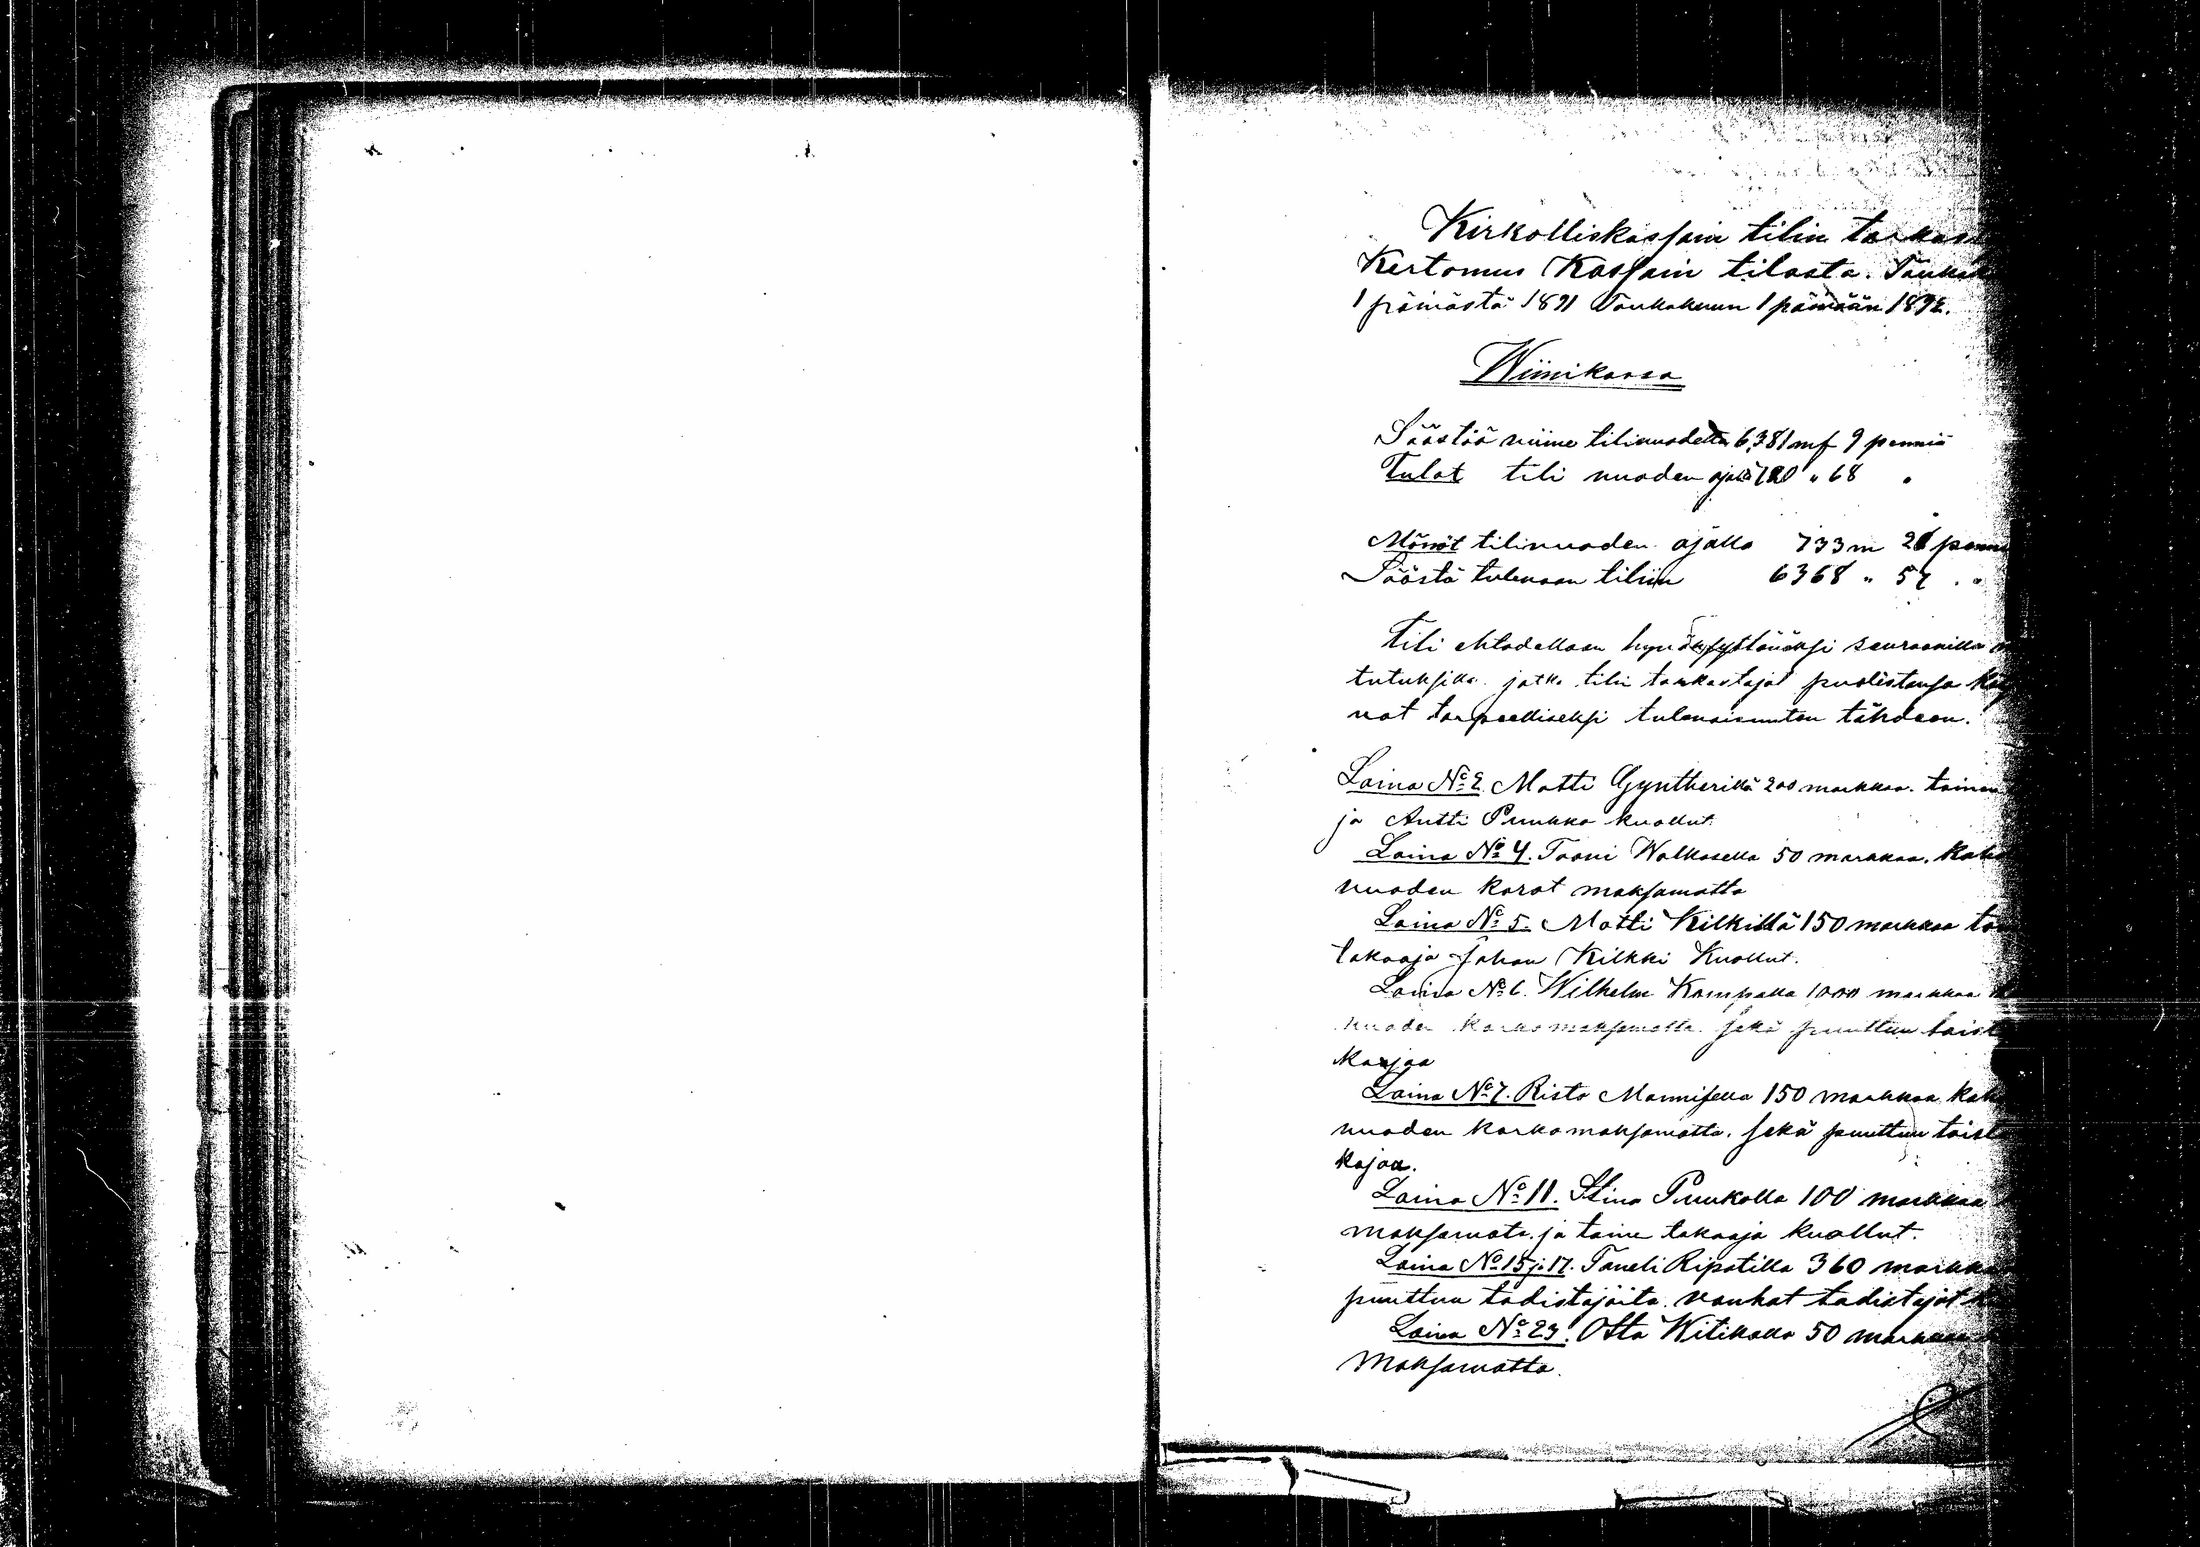 Kirkolliskassain tilin tarkas
Kertomus Kassain tilasta. Toukok
1 päivästä 1891 Toukokuun 1 päivään 1892.
Wiinikassa
Säästöä viime tilivuodelta 6,381 mf 9 penniä
Tulot tili vuoden ajalla 720 " 68 "
Mänöt tilivuoden ajalla 733 m 20 penni
Säästö tulevaan tiliin 6368 " 57 "
Tili ehdodellaan hyväksyttäväksi seuraavilla m
tutuksilla jotka tilin tarkastajat puolistansa käy
vat tarpeelliseksi tulevaisuuten tähdeen.
Laina No 2. Matti Gyntherillä 200 markkaa. toinen
ja Antti Puukko kuollut.
Laina No 4. Taavi Walkosella 50 markkaa. kah
vuoden korot maksamatta
Laina No 5. Matti Kilkillä 150 markkaa toi
takaaja Johan Kilkki Kuollut.
Laina No 6. Wilhelm Kompalla 1000 markkaa
vuoden korko maksamatta. sekä puuttuu toist
kaajaa
Laina No 7. Risto Mannisella 150 markkaa kah
vuoden korko maksamatta. sekä puuttuu toist
kajaa.
Laina No 11. Stina Puukolla 100 markkaa
maksamata. ja toine takaaja kuollut.
Laina No 15 j. 17. Taneli Ripatilla 360 markka
puuttuu todistajoita. vanhat todistajat
Laina No 23. Otto Witikalla 50 markkaa
Maksamatta.